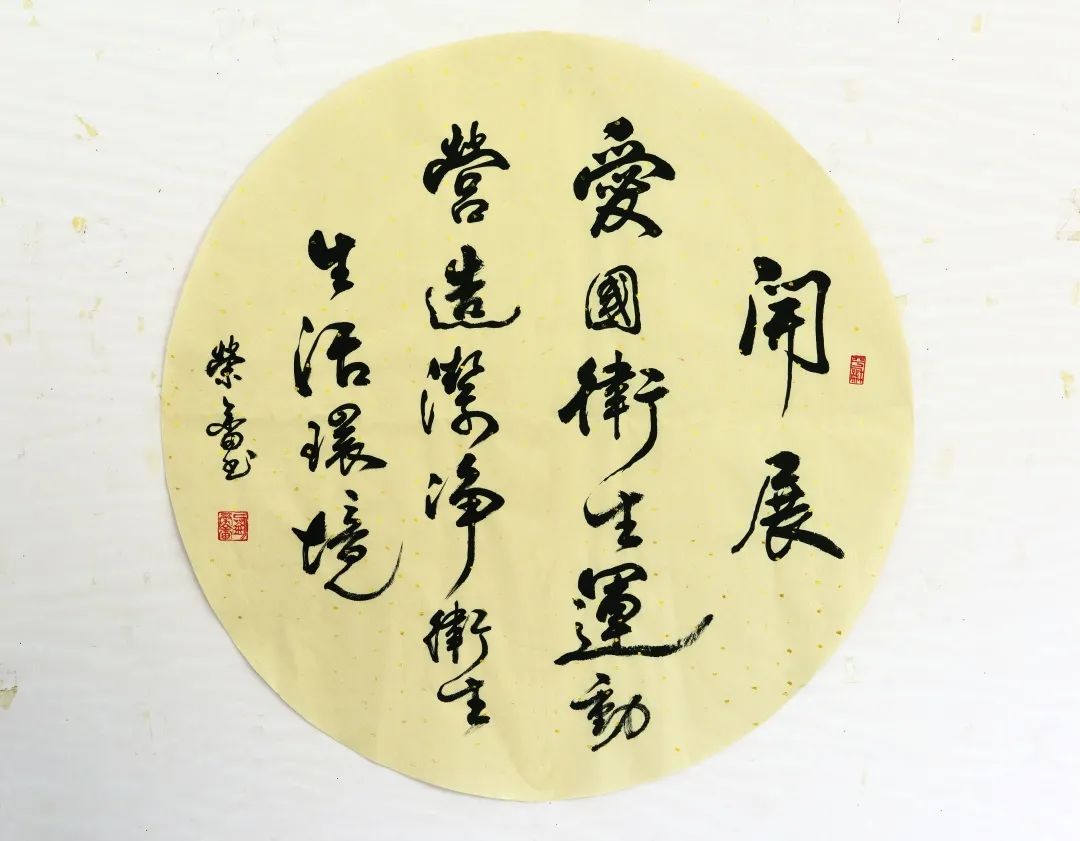 開展
愛國衛生運動
營造潔淨衛生
生活環境
榮香书